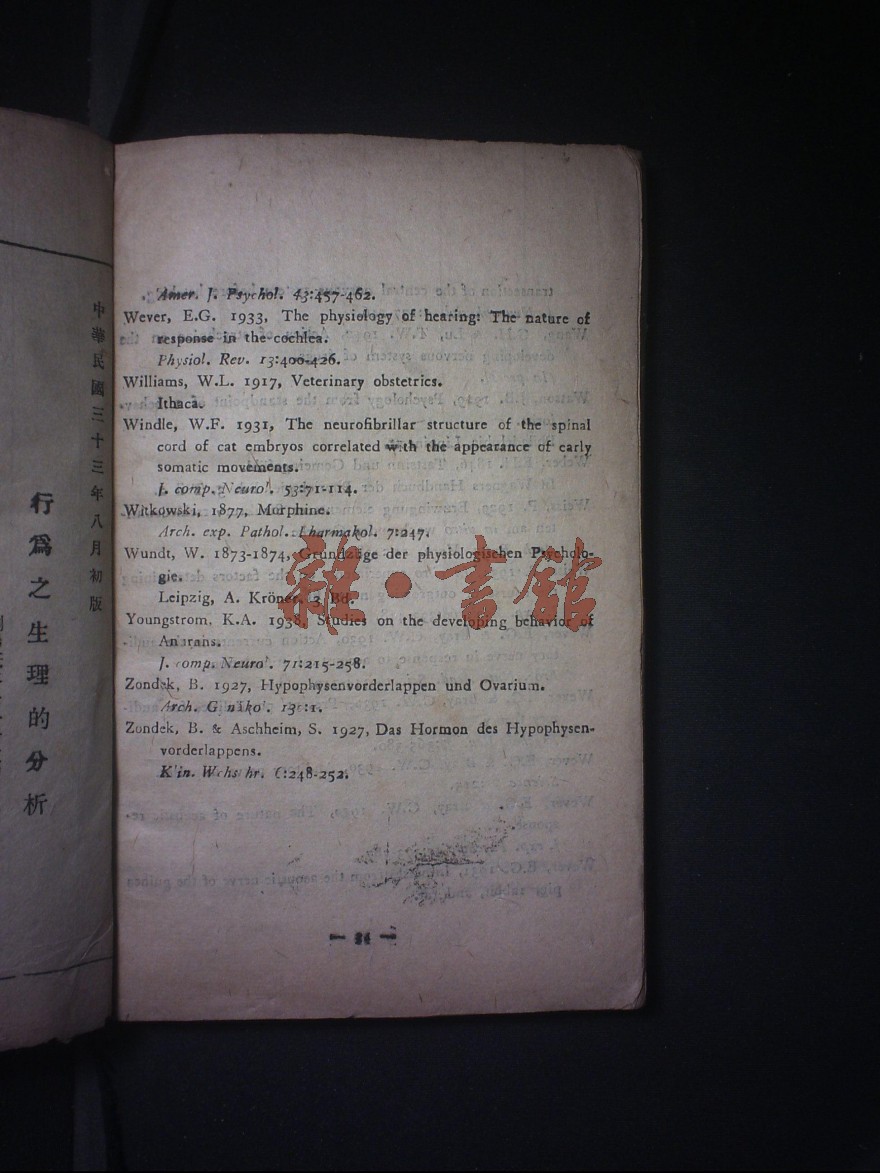 Amer. J. Psychol. 43:457-462.
Wever, E.G. 1933, The physiology of hearing: The nature of
response in the cochlea.
Physiol. Rev. 13:400-426.
Williams, W.L. 1917, Veterinary obstetrics.
Ithaca.
Windle, W.F. 1931, The neurofibrillar structure of the spinal
cord of cat embryos correlated with the appearance of early
somatic movements.
J. comp. Neurol. 53:71-114.
Witkowski, 1877, Morphine.
Arch. exp. Pathol. Pharmakol. 7:247.
Wundt, W. 1873-1874, Grundzüge der physiologischen Psycholo-
gie.
Leipzig, A. Kröner. 3 Bd.
Youngstrom, K.A. 1938, Studies on the developing behavior of
Anurans.
J. comp. Neurol. 71:215-258.
Zondek, B. 1927, Hypophysenvorderlappen und Ovarium.
Arch. Gynäkol.
Zondek, B. & Aschheim, S. 1927, Das Hormon des Hypophysen-
vorderlappens.
Klin. Wchschr. 6:248-252.
雜·書館
中華民國三十三年八月初版
行爲之生理的分析